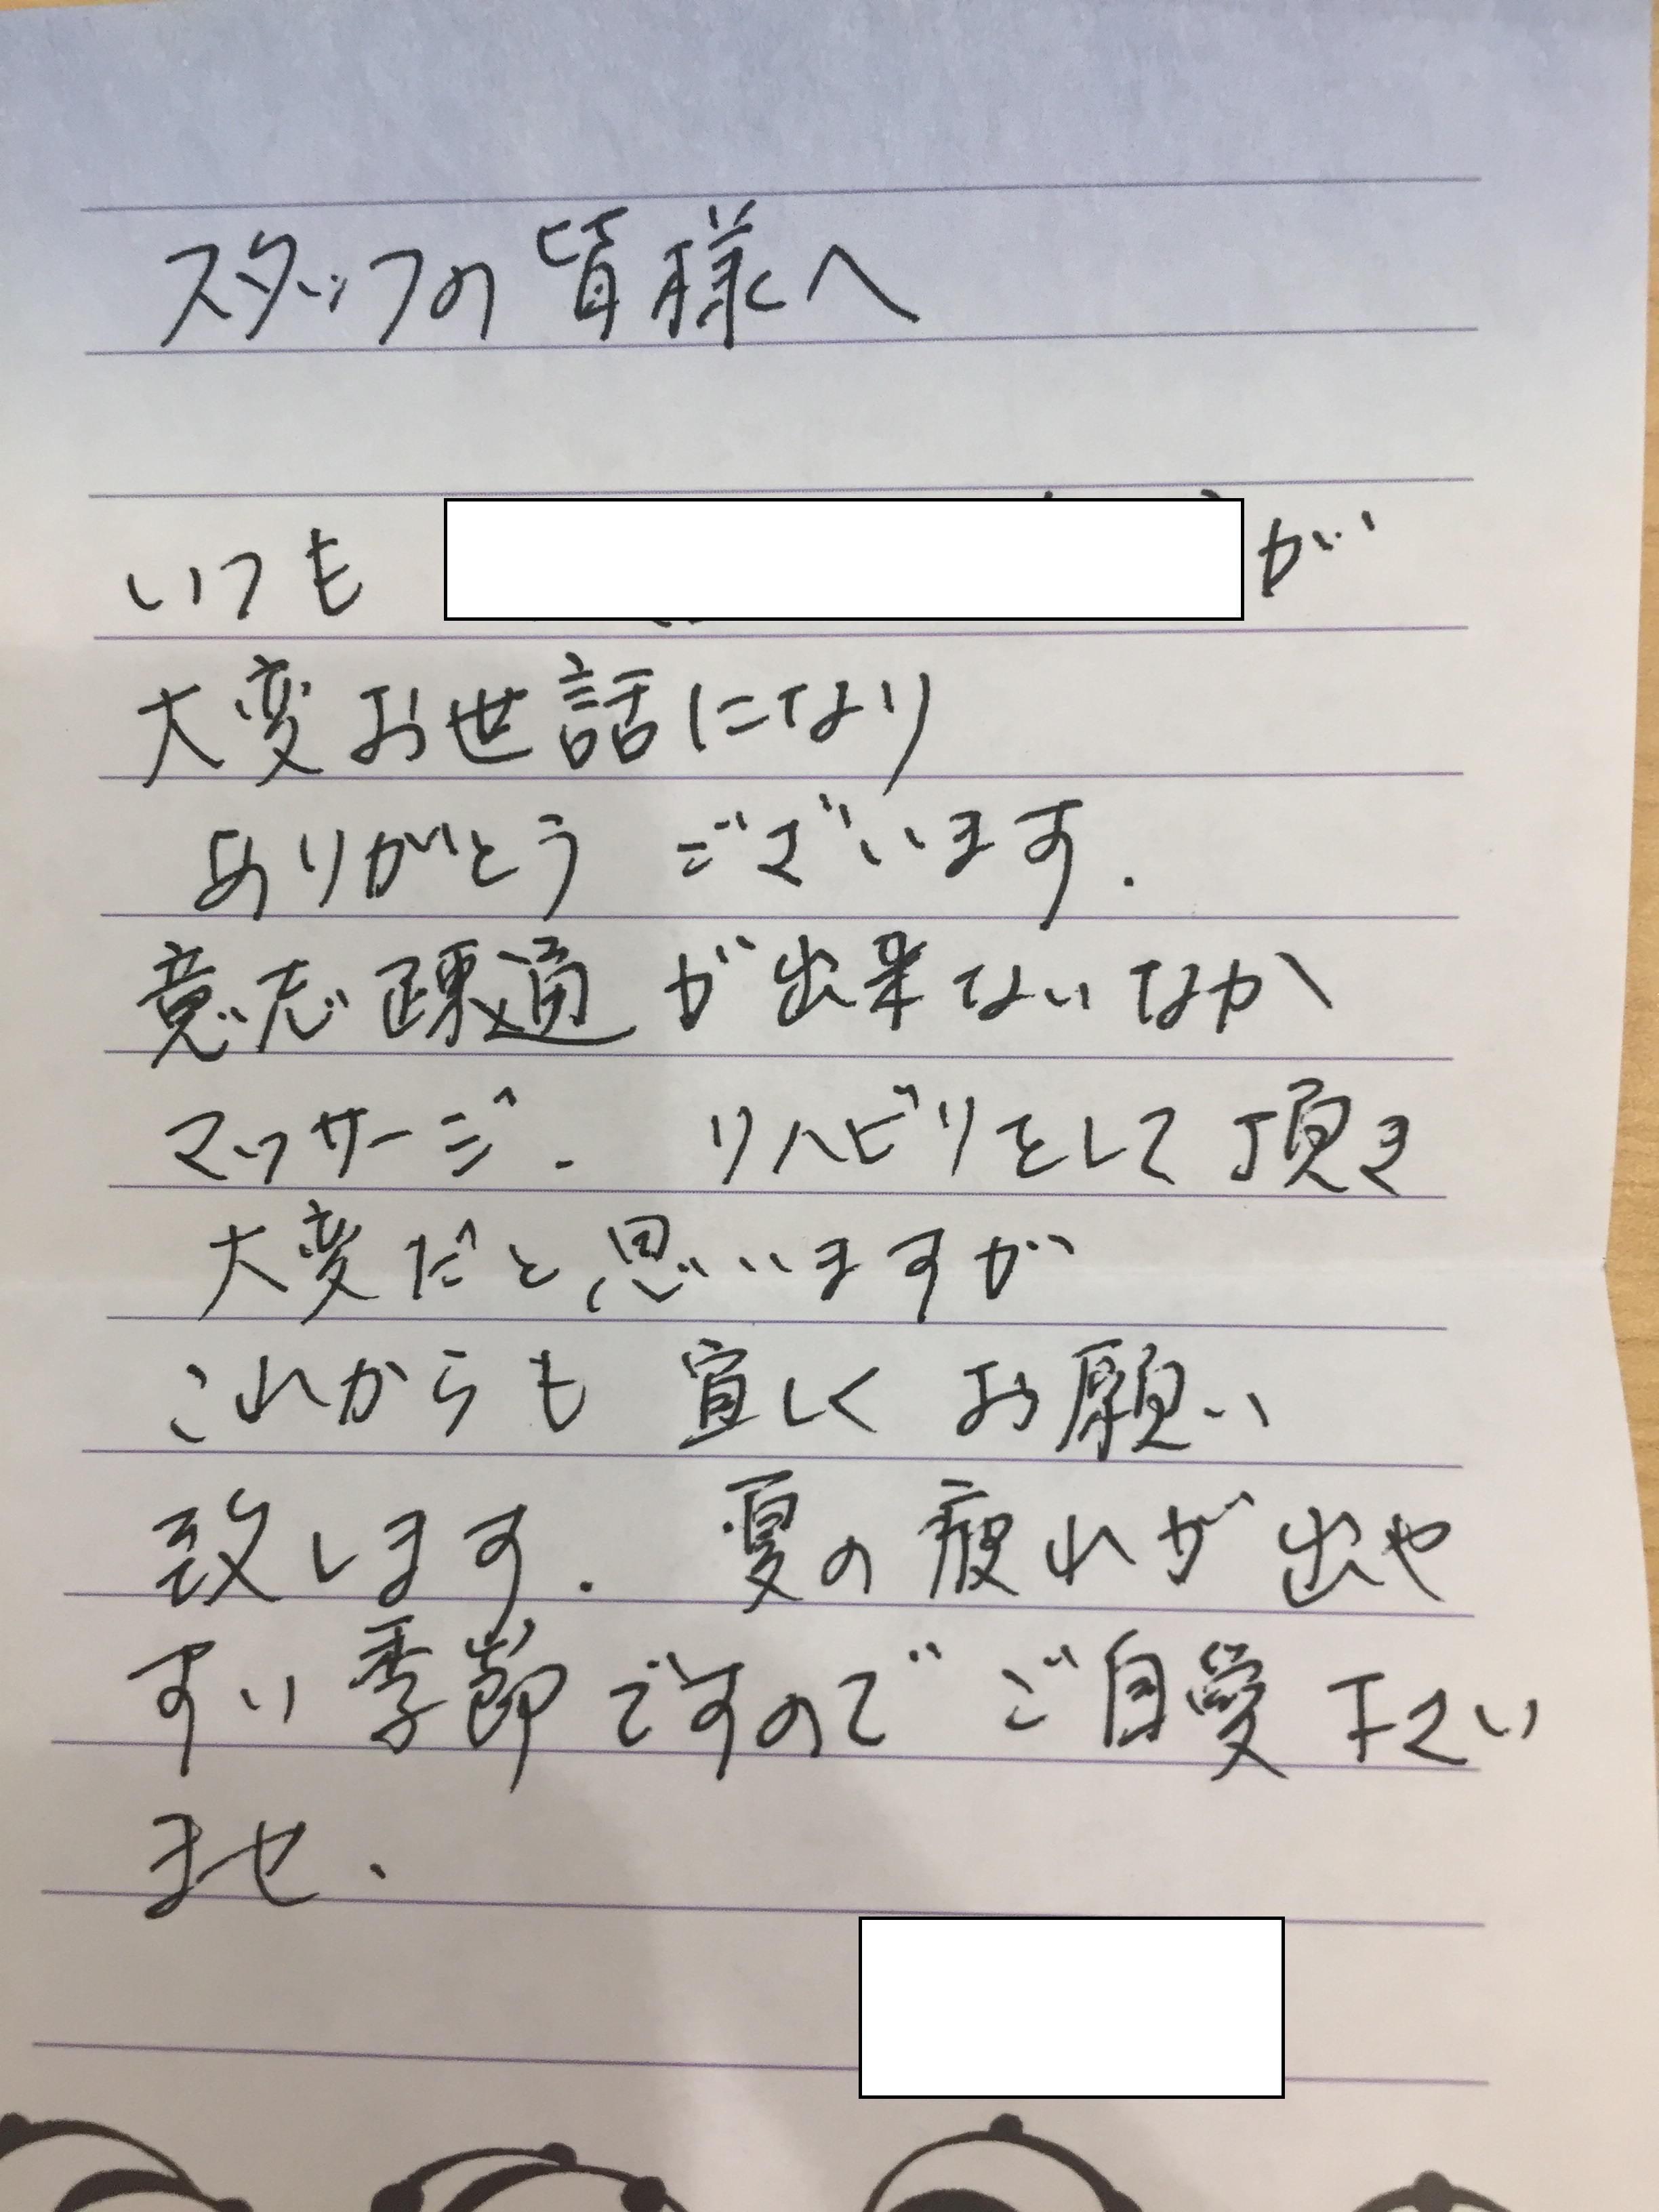 スタッフの皆様へ
いつも
が
大変お世話になり
ありがとう ございます.
意志疎通が出来ないなか
マッサージ. リハビリをして頂き
大変だと思いますが
これからも 宜しく お願い
致します. 夏の疲れが出や
すい季節ですので ご自愛下さい
ませ.